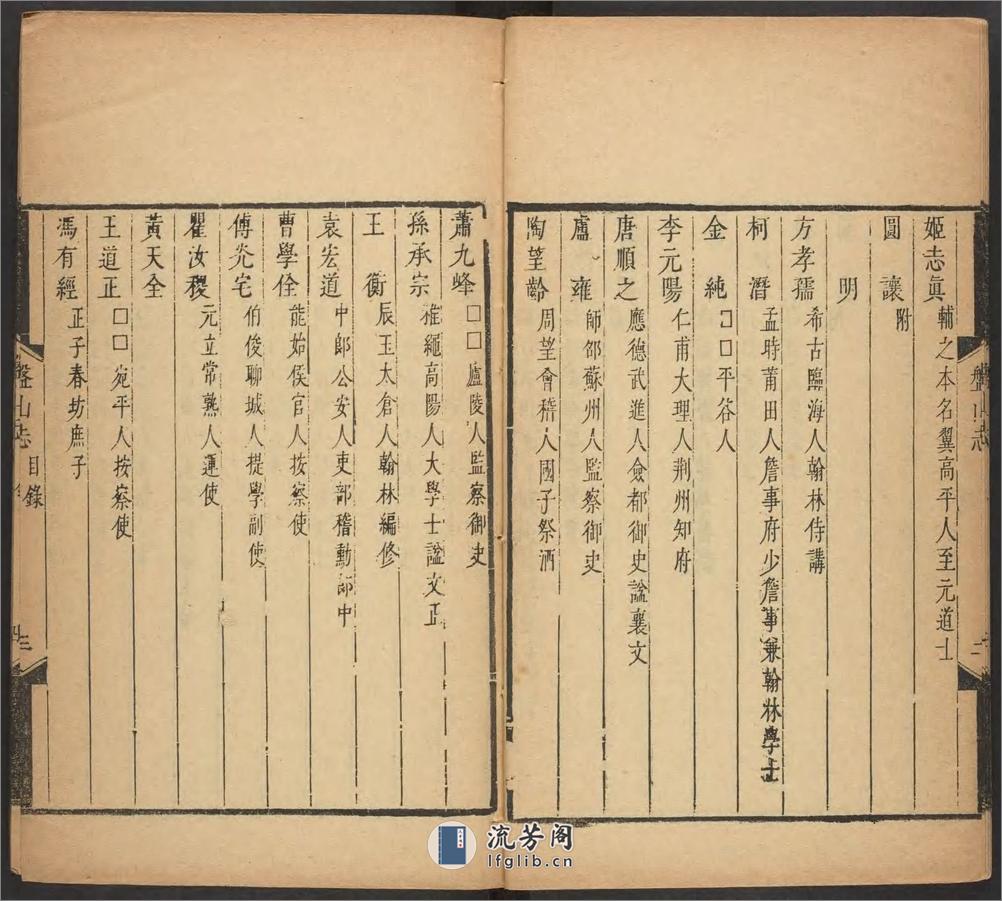 姬志眞 輔之本名翼高平人至元道士
圓讓 附
明
方孝孺 希古臨海人翰林侍講
柯潛 孟時莆田人詹事府少詹事兼翰林學士
金純 □□平谷人
李元陽 仁甫大理人荆州知府
唐順之 應德武進人僉都御史謚襄文
盧雍 師邵蘇州人監察御史
陶望齡 周望會稽人國子祭酒
蕭九峰 □□廬陵人監察御史
孫承宗 稚繩高陽人大學士謚文正
王衡 辰玉太倉人翰林編修
袁宏道 中郎公安人吏部稽勳郎中
曹學佺 能始侯官人按察使
傅光宅 伯俊聊城人提學副使
瞿汝稷 元立常熟人運使
黃天全
王道正 □□宛平人按察使
馮有經 正子春坊庶子
盤山志 目錄
盤山志
流芳阁
lfglib.cn